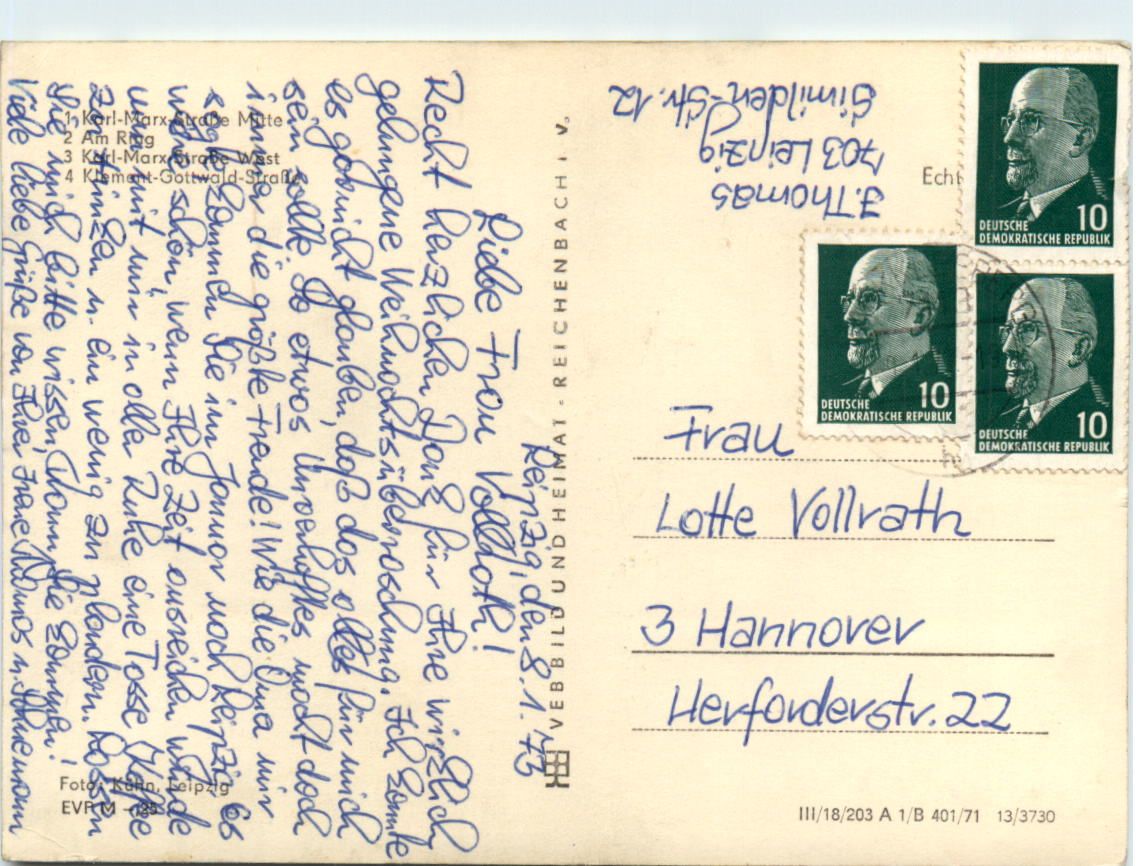 1 Karl-Marx-Straße Mitte
2 Am Ring
3 Karl-Marx-Straße West
4 Klement-Gottwald-Straße
Leipzig, den 8.1.73
Liebe Frau Vollrath!
Recht herzlichen Dank für Ihre wirklich
gelungene Weihnachtsüberraschung. Ich konnte
es garnicht glauben, daß das alles für mich
sein sollte. So etwas Unverhofftes macht doch
immer die größte Freude! Wie die Oma mir
sagte kommen Sie im Januar nach Leipzig. Es
wäre schön, wenn Ihre Zeit ausreichen würde
um mit mir in aller Ruhe eine Tasse Kaffee
zu trinken u. ein wenig zu plaudern. Lassen
Sie mich bitte wissen, wann Sie kommen!
Viele liebe Grüße von Ihrer
Foto: Kühn, Leipzig
EVP M
VEB BILD UND HEIMAT · REICHENBACH I. V.
J. Thomas
703 Leipzig
Simildenstr. 12
Echt
DEUTSCHE
DEMOKRATISCHE REPUBLIK
10
DEUTSCHE
DEMOKRATISCHE REPUBLIK
10
DEUTSCHE
DEMOKRATISCHE REPUBLIK
10
Frau
Lotte Vollrath
3 Hannover
Herforderstr. 22
III/18/203 A 1/B 401/71 13/3730